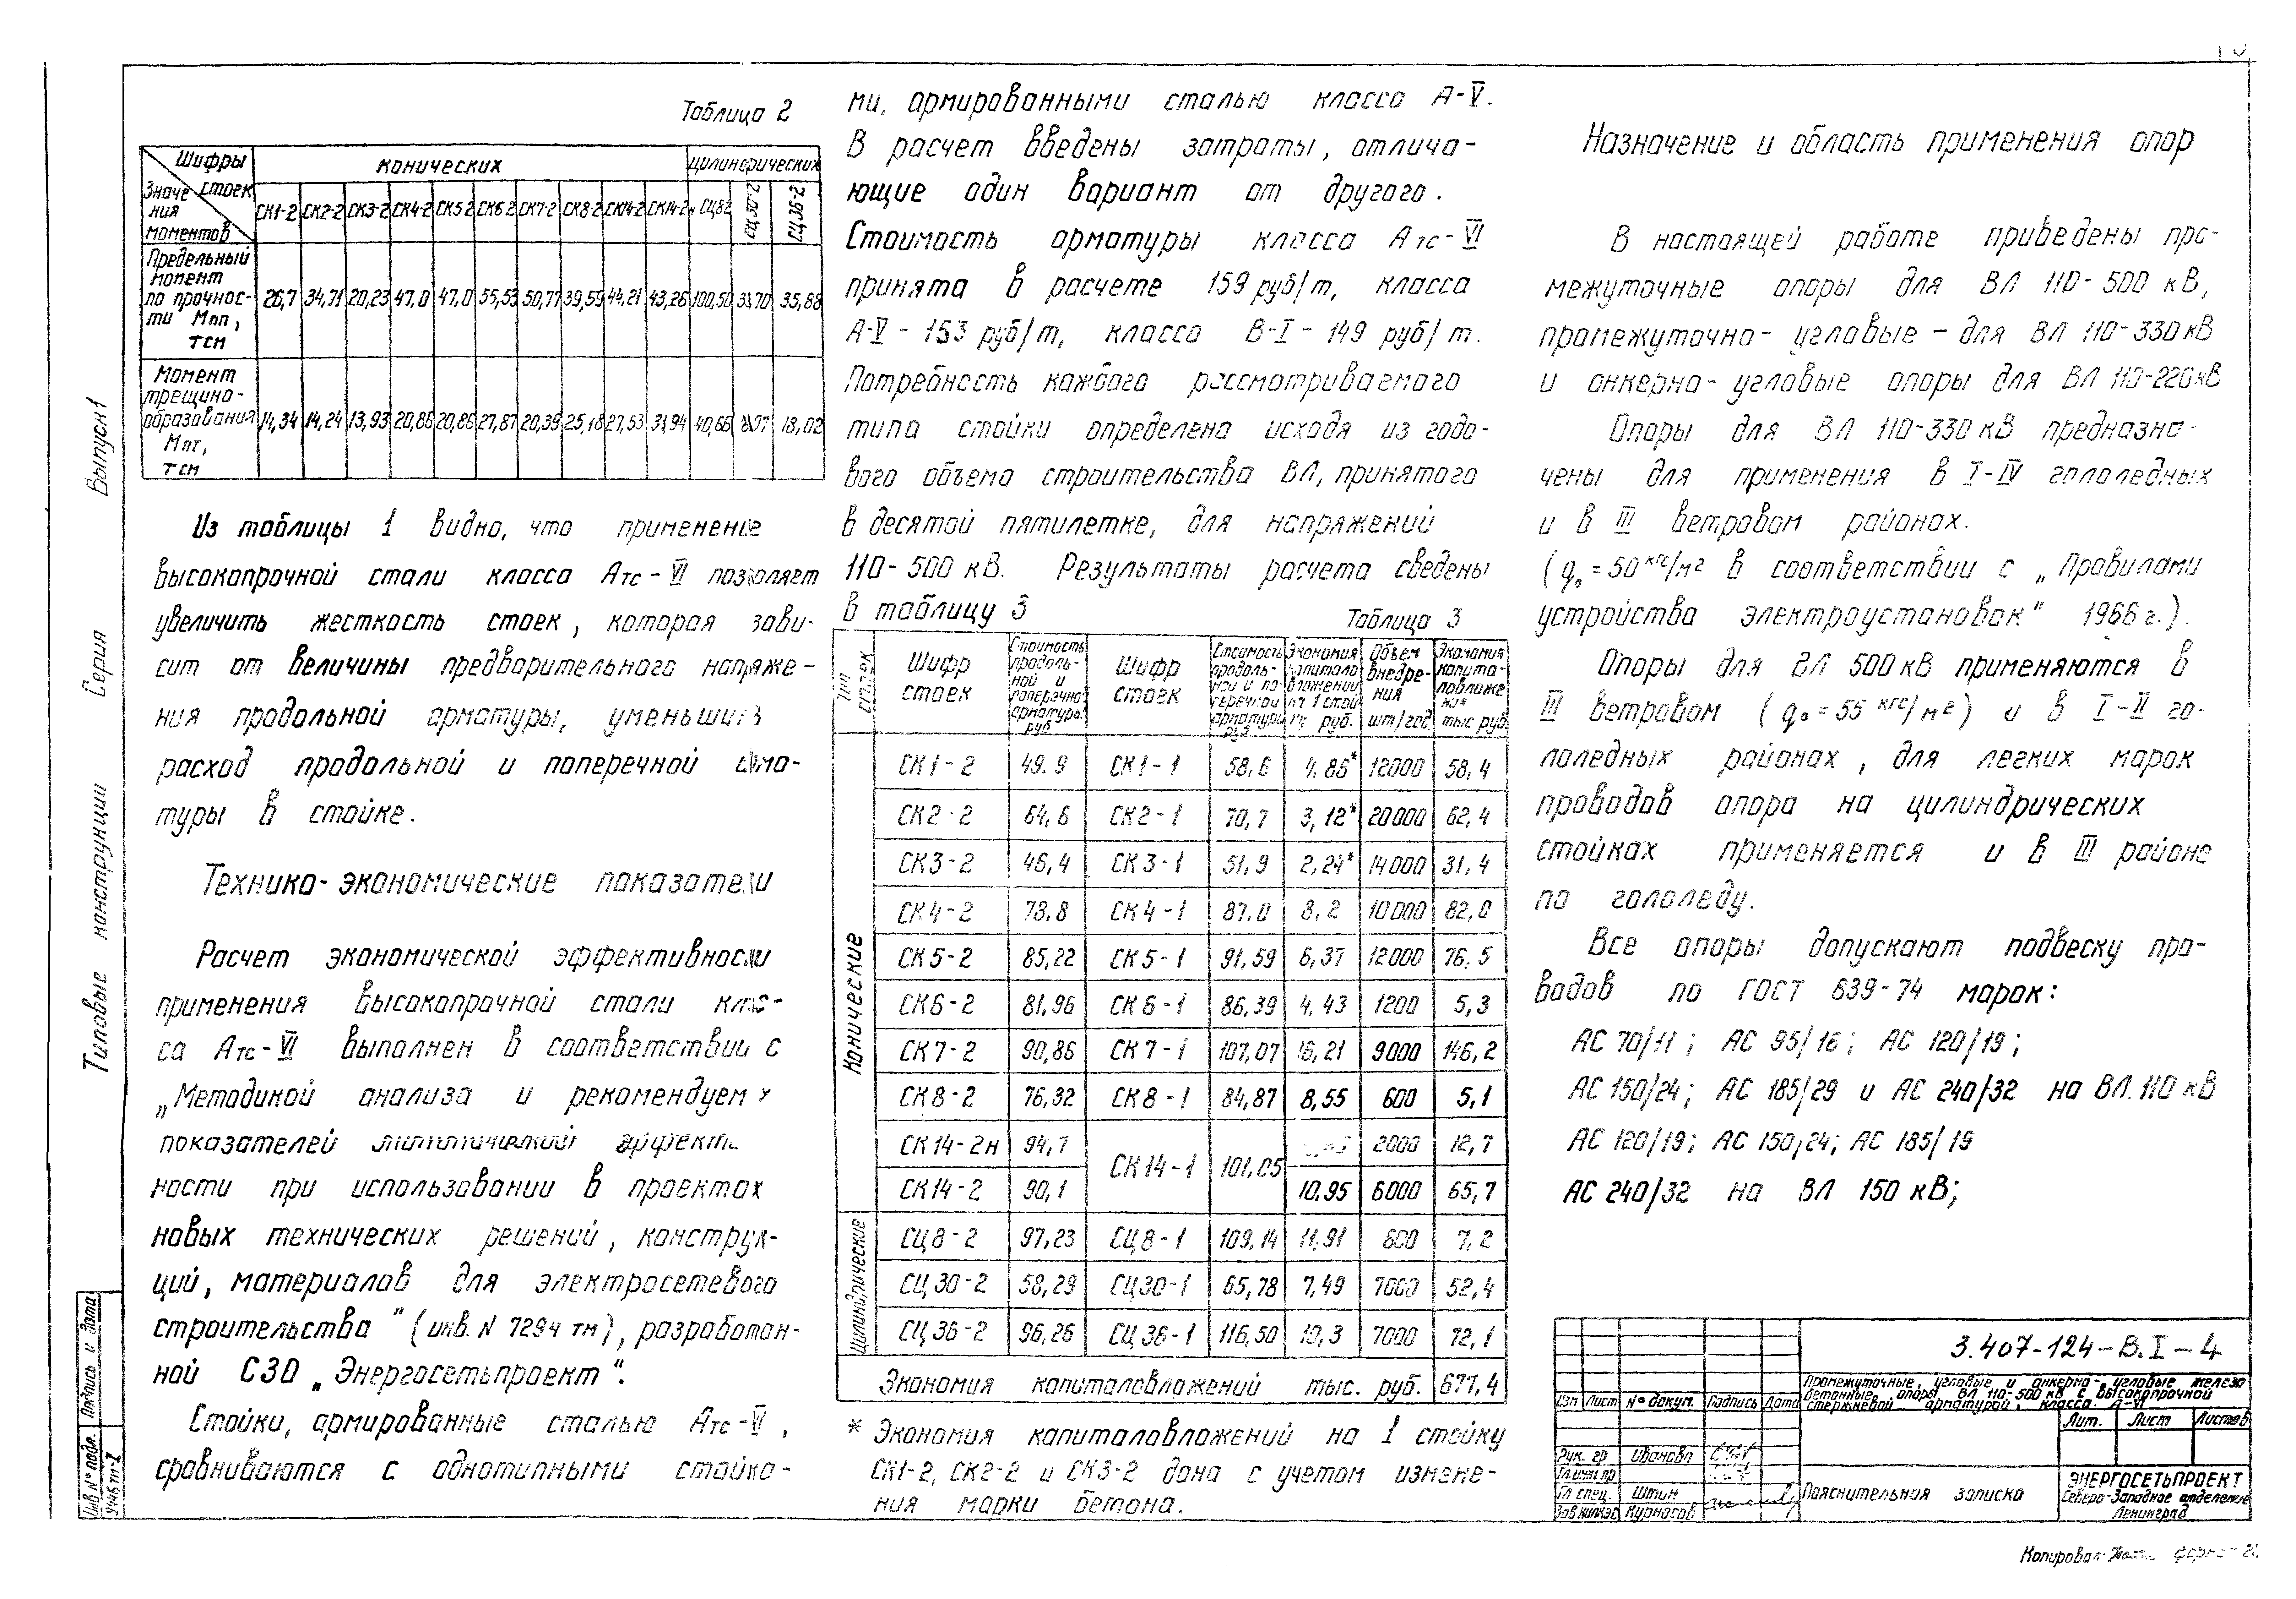 Таблица 2
Шифры стоек
Значения моментов
конических
цилиндрических
СК1-2 СК2-2 СК3-2 СК4-2 СК5-2 СК6-2 СК7-2 СК8-2 СК14-2 СК14-2н СЦ8-2 СЦ30-2 СЦ36-2
Предельный
момент
по прочнос-
ти Мпп,
тсм
26,7 34,71 20,23 47,0 47,0 55,53 50,77 39,59 44,21 43,26 100,50 35,88
Момент
трещино-
образования
Мпт,
тсм
14,34 14,24 13,93 20,86 20,86 27,87 20,39 25,18 27,53 31,94 40,66 18,02
Из таблицы 1 видно, что применение
высокопрочной стали класса Атс-VI позволяет
увеличить жесткость стоек, которая зави-
сит от величины предварительного напряже-
ния продольной арматуры, уменьшить
расход продольной и поперечной арма-
туры в стойке.
Технико-экономические показатели
Расчет экономической эффективности
применения высокопрочной стали клас-
са Атс-VI выполнен в соответствии с
„Методикой анализа и рекомендуемых
показателей эффекти
ности при использовании в проектах
новых технических решений, конструк-
ций, материалов для электросетевого
строительства" (инв. N 7294 тм), разработан-
ной СЗО „Энергосетьпроект".
Стойки, армированные сталью Атс-VI,
сравниваются с однотипными стойка-
ми, армированными сталью класса А-V.
В расчет введены затраты, отлича-
ющие один вариант от другого.
Стоимость арматуры класса Атс-VI
принята в расчете 159 руб/т, класса
А-V - 153 руб/т, класса В-I - 149 руб/т.
Потребность каждого рассматриваемого
типа стойки определена исходя из годо-
вого объема строительства ВЛ, принятого
в десятой пятилетке, для напряжений
110-500 кВ. Результаты расчета сведены
в таблицу 3
Таблица 3
Тип стоек
Шифр стоек
Стоимость продоль-ной и поперечной арматуры руб
Шифр стоек
Стоимость продоль-ной и по-перечной арматуры руб
Экономия капитало вложений на 1 стойку руб.
Объем внедре-ния шт/год
Экономия капита-ловложения тыс руб.
Конические
СК1-2 49.9 СК1-1 58,6 4,86* 12000 58,4
СК2-2 64,6 СК2-1 70,7 3,12* 20000 62,4
СК3-2 46,4 СК3-1 51,9 2,24* 14000 31,4
СК4-2 78,8 СК4-1 87.0 8,2 10000 82,0
СК5-2 85,22 СК5-1 91,59 6,37 12000 76,5
СК6-2 81,96 СК6-1 86,39 4,43 1200 5,3
СК7-2 90,86 СК7-1 107,07 16,21 9000 146,2
СК8-2 76,32 СК8-1 84,87 8,55 600 5,1
СК14-2н 94,7 СК14-1 101,05 2000 12,7
СК14-2 90,1 10,95 6000 65,7
Цилиндрические
СЦ8-2 97,23 СЦ8-1 109,14 11,91 600 7,2
СЦ30-2 58,29 СЦ30-1 65,78 7,49 7000 52,4
СЦ36-2 96,26 СЦ36-1 116,50 10,3 7000 72,1
Экономия капиталовложений тыс. руб. 677,4
* Экономия капиталовложений на 1 стойку
СК1-2, СК2-2 и СК3-2 дана с учетом измене-
ния марки бетона.
Назначение и область применения опор
В настоящей работе приведены про-
межуточные опоры для ВЛ 110-500 кВ,
промежуточно-угловые - для ВЛ 110-330 кВ
и анкерно-угловые опоры для ВЛ 110-220 кВ
Опоры для ВЛ 110-330 кВ предназна-
чены для применения в I-IV гололедных
и в III ветровом районах.
(q₀ = 50 кгс/м² в соответствии с „Правилами
устройства электроустановок" 1966 г.).
Опоры для ВЛ 500 кВ применяются в
III ветровом (q₀ = 55 кгс/м²) и в I-II го-
лоледных районах, для легких марок
проводов опора на цилиндрических
стойках применяется и в III районе
по гололеду.
Все опоры допускают подвеску про-
водов по ГОСТ 839-74 марок:
АС 70/11; АС 95/16; АС 120/19;
АС 150/24; АС 185/29 и АС 240/32 на ВЛ. 110 кВ
АС 120/19; АС 150/24; АС 185/19
АС 240/32 на ВЛ 150 кВ;
Типовые конструкции Серия Выпуск 1
Инв № подл. Подпись и дата
9446 тм-I
3.407-124-В.I-4
Промежуточные, угловые и анкерно-угловые железо
бетонные опоры ВЛ 110-500 кВ с высокопрочной
стержневой арматурой, класса А-VI
Изм Лист № докум. Подпись Дата
Лит. Лист Листов
Рук. гр Иванова
Гл инж пр
Гл спец. Штин
Зав нилкэс Курносов
Пояснительная записка
ЭНЕРГОСЕТЬПРОЕКТ
Северо-Западное отделение
Ленинград
Копировал формат